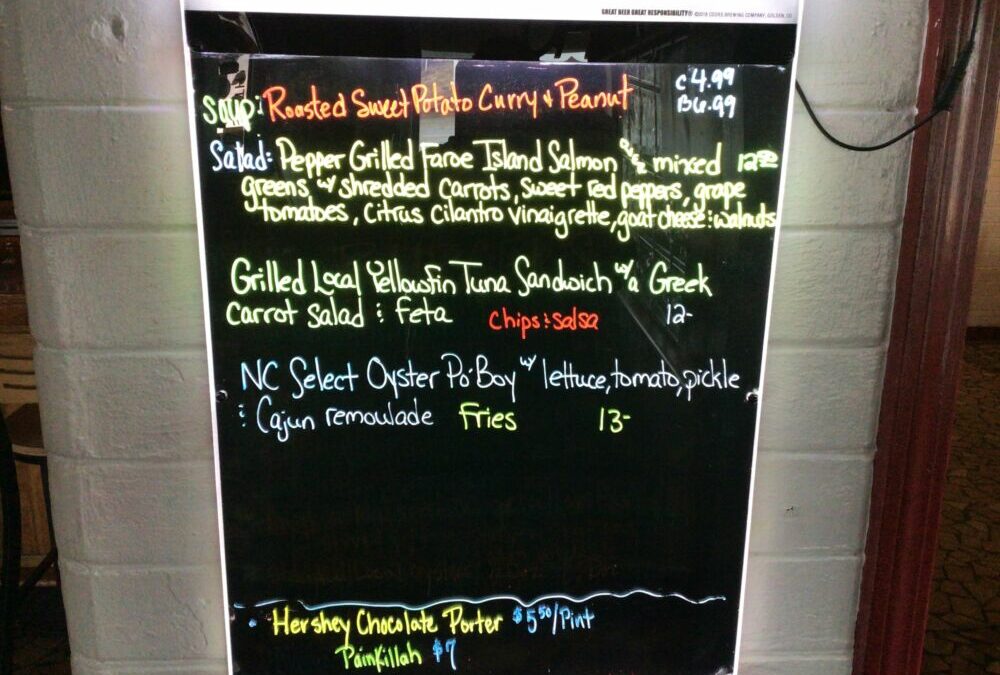 GREAT BEER GREAT RESPONSIBILITY® ©2018 COORS BREWING COMPANY, GOLDEN, CO
Soup: Roasted Sweet Potato Curry & Peanut C 4.99
B 6.99
Salad: Pepper Grilled Faroe Island Salmon mixed 12.50
greens w/ shredded carrots, sweet red peppers, grape
tomatoes, Citrus cilantro vinaigrette, goat cheese & walnuts
Grilled Local Yellowfin Tuna Sandwich w/ a Greek
Carrot Salad & Feta Chips & salsa 12-
NC Select Oyster Po'Boy w/ lettuce, tomato, pickle
& Cajun remoulade Fries 13-
Hershey Chocolate Porter $5.50/Pint
PainKillah $7